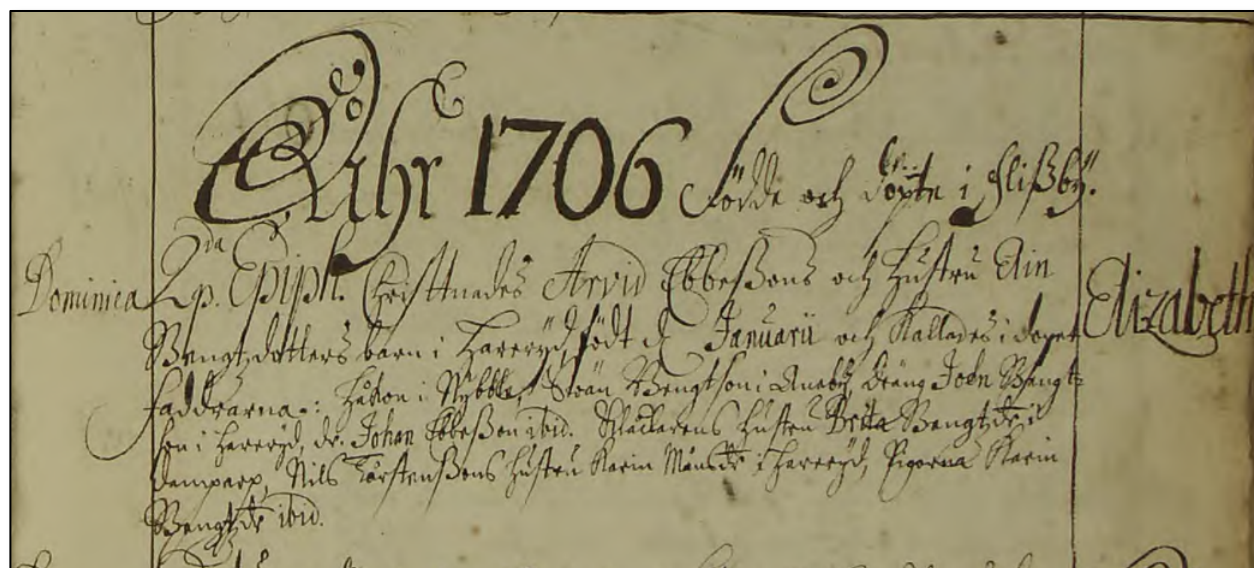 Åhr 1706 Födde och döpte i Flißby.
Dominica 2da p. Epiph. Christnades Arvid Ebbeßons och hustru Elin Elizabeth
Bengtzdotters barn i Hareryd, födt d Januarii och Kallades i dopet
faddrarna: Håkon i Nybble, Swän Bengtson i Aneby, dräng Joen Bengt-
son i Hareryd, dr. Johan Ebbeßon ibid. hustru Brita Bengtzdr i
damparp, Nils Torstenßons hustru Karin Månsdr i Hareryd, Pigorna Karin
Bengtzdr ibid.